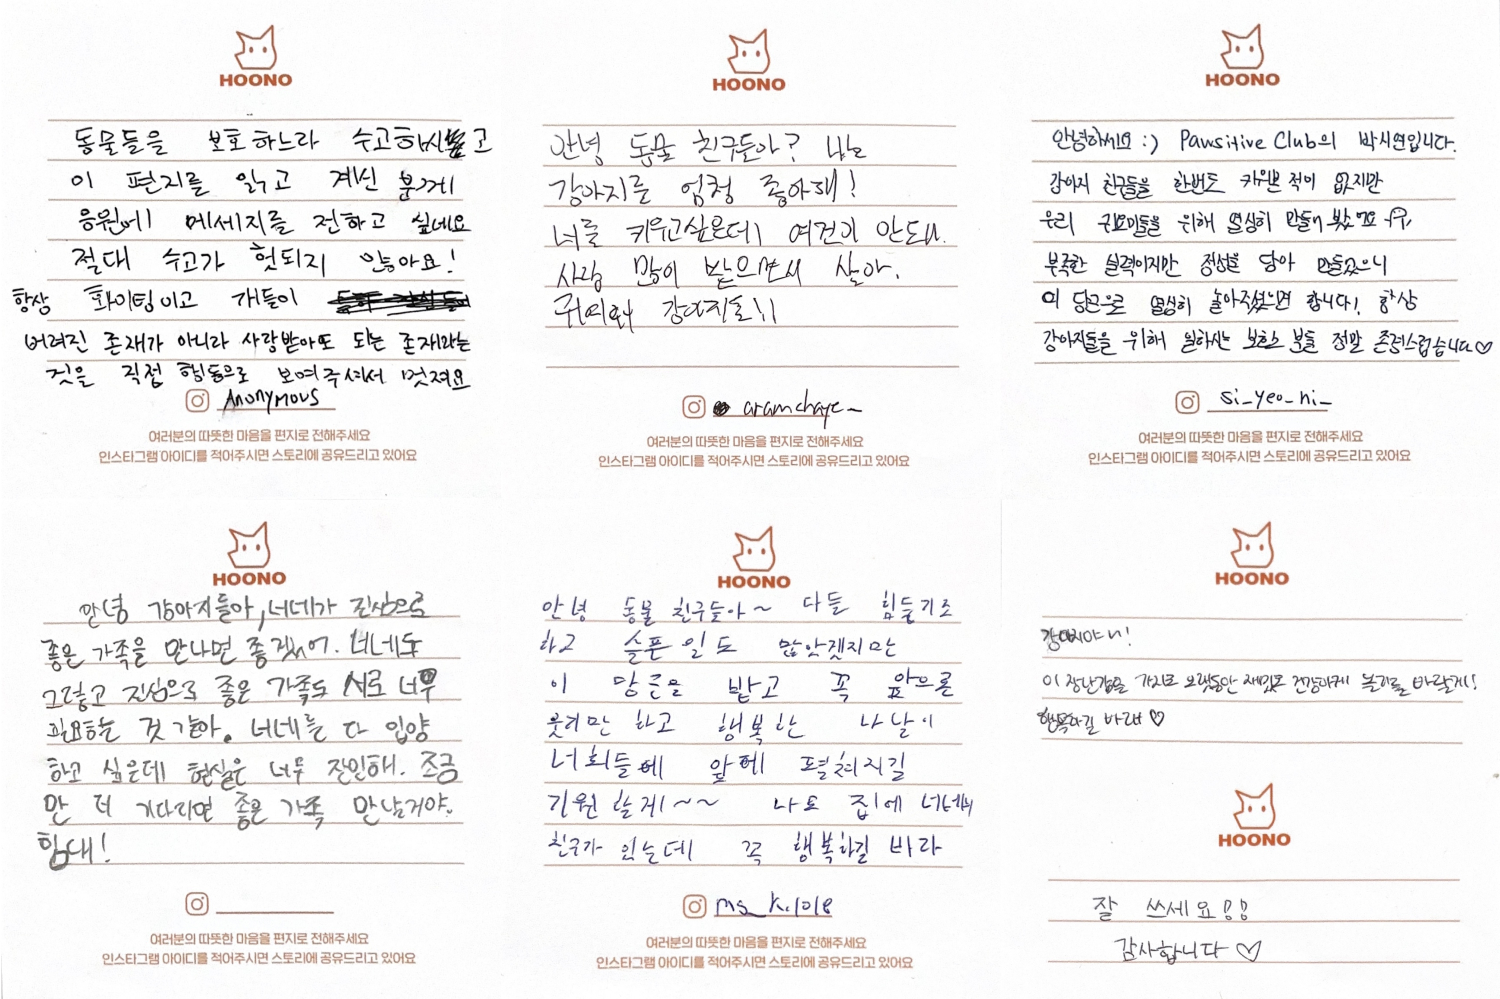 HOONO
동물들을 보호하느라 수고하시고
이 편지를 읽고 계신 분께
응원에 메세지를 전하고 싶네요
절대 수고가 헛되지 않아요!
항상 화이팅이고 개들이
버려진 존재가 아니라 사랑받아도 되는 존재라는
것을 직접 행동으로 보여주셔서 멋져요
Anonymous
여러분의 따뜻한 마음을 편지로 전해주세요
인스타그램 아이디를 적어주시면 스토리에 공유드리고 있어요
HOONO
안녕 동물 친구들아? 나는
강아지를 엄청 좋아해!
너를 키우고싶은데 여건이 안돼.
사랑 많이 받으면서 살아.
귀여워 강아지들!!
aramchaye_
여러분의 따뜻한 마음을 편지로 전해주세요
인스타그램 아이디를 적어주시면 스토리에 공유드리고 있어요
HOONO
안녕하세요 :) Pawsitive Club의 박시연입니다.
강아지 친구들을 한번도 키워본 적이 없지만
우리 귀요미들을 위해 열심히 만들어 봤어요
부족한 실력이지만 정성을 담아 만들었으니
이 당근으로 열심히 놀아주셨으면 합니다! 항상
강아지들을 위해 일하시는 보호소 분들 정말 존경스럽습니다♡
si_yeo_ni_
여러분의 따뜻한 마음을 편지로 전해주세요
인스타그램 아이디를 적어주시면 스토리에 공유드리고 있어요
HOONO
안녕 강아지들아, 너네가 진심으로
좋은 가족을 만나면 좋겠어. 너네도
그렇고 진심으로 좋은 가족도 서로 너무
필요하는 것 같아. 너네를 다 입양
하고 싶은데 현실은 너무 잔인해. 조금
만 더 기다리면 좋은 가족 만날거야.
힘내!
여러분의 따뜻한 마음을 편지로 전해주세요
인스타그램 아이디를 적어주시면 스토리에 공유드리고 있어요
HOONO
안녕 동물 친구들아~ 다들 힘들기도
하고 슬픈 일도 많았겠지만
이 당근을 받고 꼭 앞으론
웃기만 하고 행복한 나날이
너희들에 앞에 펼쳐지길
기원할게~~ 나도 집에 너네
친구가 있는데 꼭 행복하길 바라
ms_k.1018
여러분의 따뜻한 마음을 편지로 전해주세요
인스타그램 아이디를 적어주시면 스토리에 공유드리고 있어요
HOONO
강아지야!
이 장난감을 가지고 오랫동안 재밌고 건강하게 놀기를 바랄게!
행복하길 바래♡
HOONO
잘 쓰세요!!
감사합니다♡